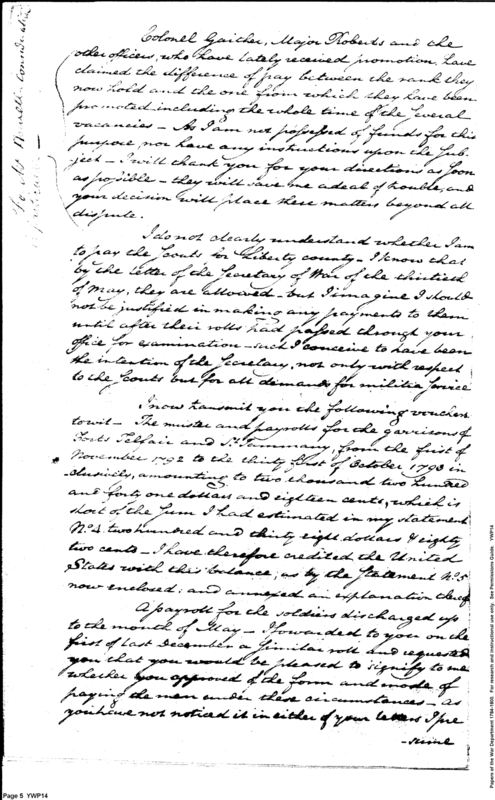 Colonel Gaither, Major Roberts and the
other officers, who have lately received promotion, have
claimed the difference of pay between the rank they
now hold and the one from which they have been
promoted including the whole time of the several
vacancies – As I am not possessed of funds for this
purpose, nor have any instructions upon the sub-
ject – I will thank you for your directions as soon
as possible – they will save me a deal of trouble, and
your decision will place these matters beyond all
dispute.
I do not clearly understand whether I am
to pay the Scouts for Liberty county – I know that
by the letter of the Secretary of War of the thirtieth
of May, they are allowed – but I imagine I should
not be justified in making any payments to them
until after their rolls had passed through your
office for examination – such I conceive to have been
the intention of the Secretary, not only with respect
to the Scouts but for all demands for militia service
I now transmit you the following vouchers
to wit – The muster and payrolls for the garrisons of
Forts Telfair and St. Tammany, from the first of
November 1792 to the thirty first of October 1793 in
clusively, amounting to two thousand two hundred
and forty one dollars and eighteen cents, which is
short of the sum I had estimated in my statement
No. 4 two hundred and thirty eight dollars & eighty
two cents – I have therefore credited the United
States with this balance, as by the Statement No. 5
now enclosed; and annexed an explanation thereof
A payroll for the soldiers discharged up
to the month of May – I forwarded to you on the
first of last December a similar roll and requested
you that you would be pleased to signify to me
whether you approved of the form and mode of
paying the men under these circumstances – as
you have not noticed it in either of your letters I pre
-sume
To Mr
Page 5 YWP14
Papers of the War Department 1784-1800. For research and instructional use only. See Permissions Guide. YWP14